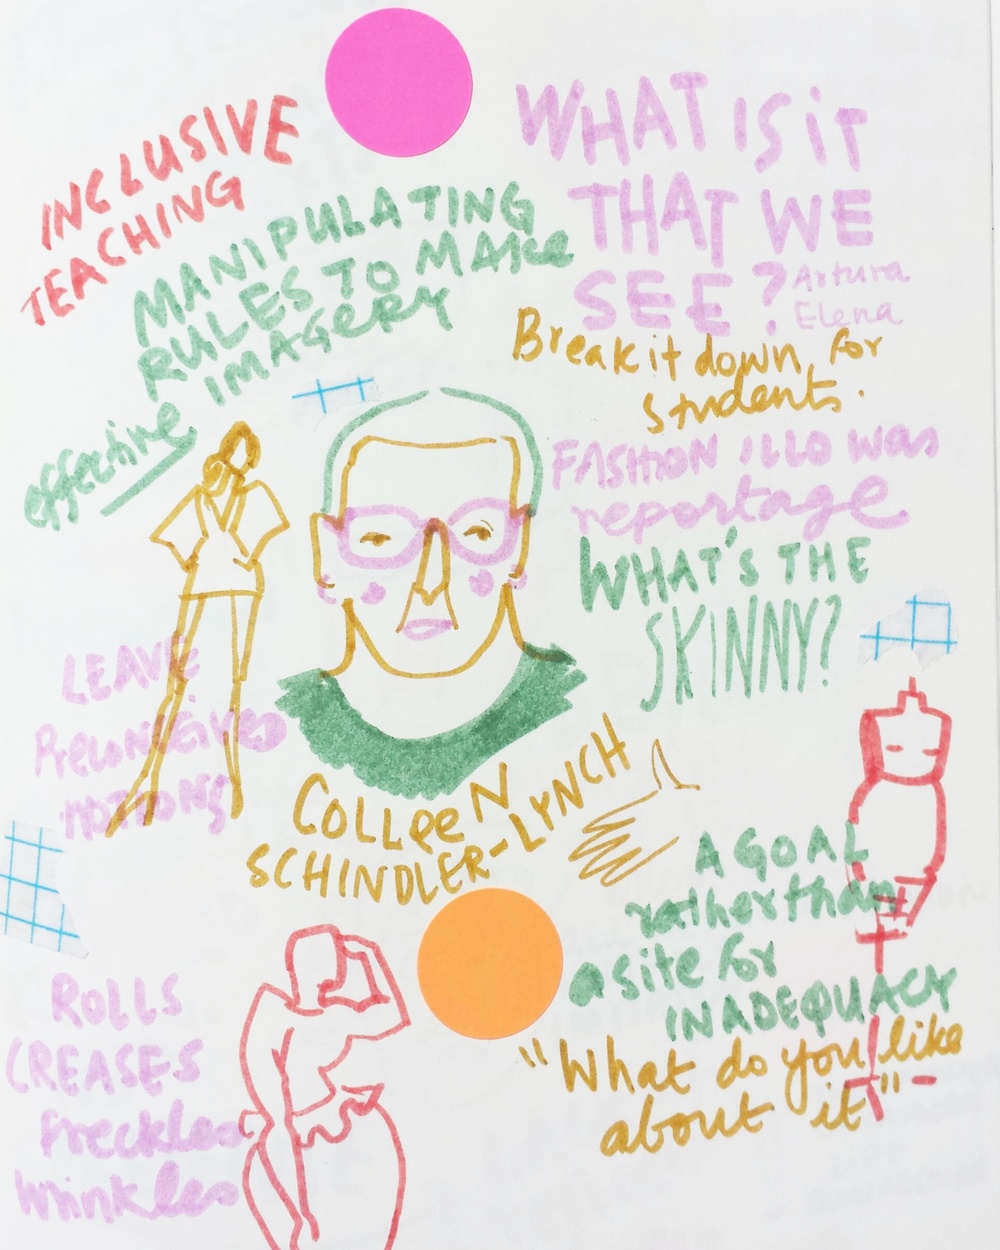 INCLUSIVE
TEACHING
MANIPULATING
RULES TO MAKe
effective IMAGeRY
WHAT IS iT
THAT WE
SEE?
Artura
Elena
Break it down for
students.
FASHION ILLO was
reportage
WHAT'S THE
SKINNY?
LEAVE
PReCONCEiVeD
NOTIONS
COLLeeN
SCHINDLER-LYNCH
A GOAL
rather than
a site for
INADEQUACY
"What do you like
about it"
ROLLS
CREASES
freckles
Wrinkles